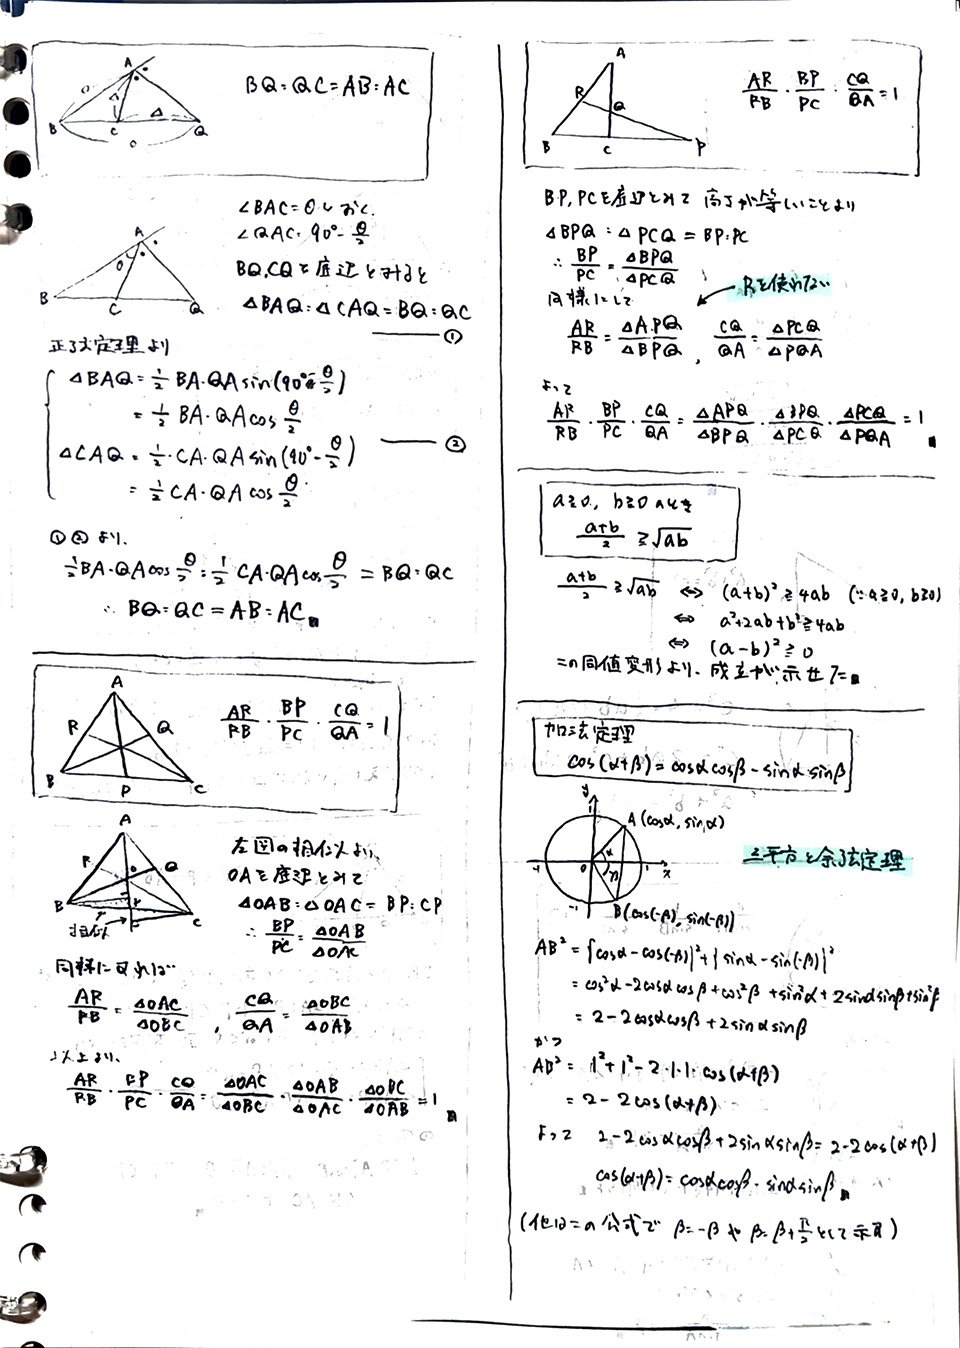 BQ:QC=AB:AC
∠BAC=θとおく、
∠QAC=90°-θ/2
BQ,CQを底辺とみると
△BAQ:△CAQ=BQ:QC
①
正弦定理より
△BAQ=1/2 BA・QA sin(90°+θ/2)
=1/2 BA・QA cos θ/2
②
△CAQ=1/2・CA・QA sin(90°-θ/2)
=1/2 CA・QA cos θ/2
①②より、
1/2 BA・QA cos θ/2 : 1/2 CA・QA cos θ/2 = BQ:QC
∴ BQ:QC=AB:AC
AR/RB・BP/PC・CQ/QA=1
左図の相似より、
OAを底辺とみて
△OAB:△OAC=BP:CP
∴ BP/PC=△OAB/△OAC
相似
同様にすれば
AR/RB=△OAC/△OBC , CQ/QA=△OBC/△OAB
以上より、
AR/RB・BP/PC・CQ/QA=△OAC/△OBC・△OAB/△OAC・△OBC/△OAB=1
AR/RB・BP/PC・CQ/QA=1
BP,PCを底辺とみて 高さが等しいことより
△BPQ:△PCQ=BP:PC
∴ BP/PC=△BPQ/△PCQ
同様にして
Rを使わない
AR/RB=△APQ/△BPQ , CQ/QA=△PCQ/△PQA
よって
AR/RB・BP/PC・CQ/QA=△APQ/△BPQ・△BPQ/△PCQ・△PCQ/△PQA=1
a≧0, b≧0のとき
a+b/2≧√ab
a+b/2≧√ab ⇔ (a+b)²≧4ab (∵a≧0, b≧0)
⇔ a²+2ab+b²≧4ab
⇔ (a-b)²≧0
この同値変形より、成立が示せた
加法定理
cos(α+β)=cosαcosβ-sinαsinβ
A(cosα, sinα)
三平方と余弦定理
B(cos(-β), sin(-β))
AB²={cosα-cos(-β)}²+{sinα-sin(-β)}²
=cos²α-2cosαcosβ+cos²β+sin²α+2sinαsinβ+sin²β
=2-2cosαcosβ+2sinαsinβ
かつ
AB²=1²+1²-2・1・1・cos(α+β)
=2-2cos(α+β)
よって 2-2cosαcosβ+2sinαsinβ=2-2cos(α+β)
cos(α+β)=cosαcosβ-sinαsinβ
(他はこの公式で β=-βやβ=β+π/2として示す)